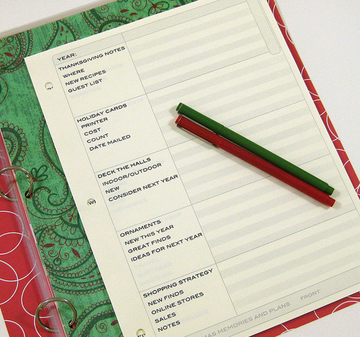 YEAR:
THANKSGIVING NOTES
WHERE
NEW RECIPES
GUEST LIST
HOLIDAY CARDS
PRINTER
COST
COUNT
DATE MAILED
DECK THE HALLS
INDOOR/OUTDOOR
NEW
CONSIDER NEXT YEAR
ORNAMENTS
NEW THIS YEAR
GREAT FINDS
IDEAS FOR NEXT YEAR
SHOPPING STRATEGY
NEW FINDS
ONLINE STORES
SALES
NOTES
MAS MEMORIES AND PLANS FRONT